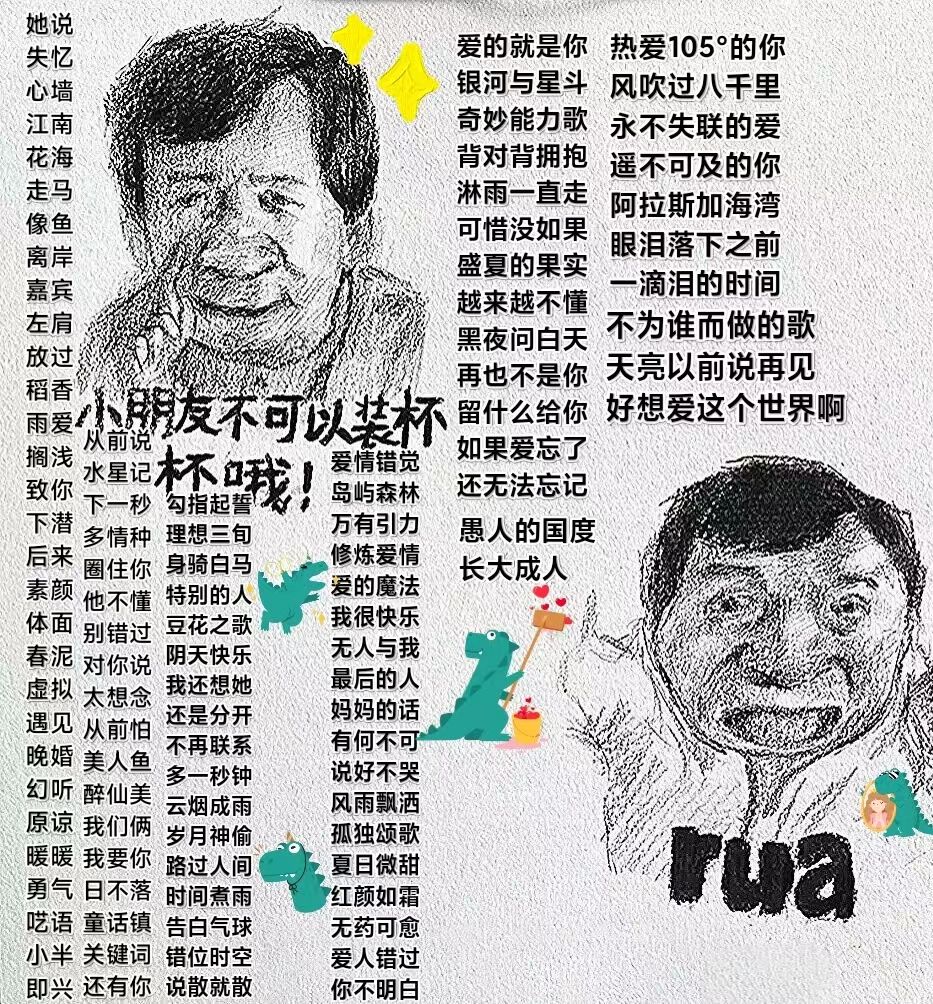 她说
失忆
心墙
江南
花海
走马
像鱼
离岸
嘉宾
左肩
放过
稻香
雨爱
搁浅
致你
下潜
后来
素颜
体面
春泥
虚拟
遇见
晚婚
幻听
原谅
暖暖
勇气
呓语
小半
即兴
小朋友不可以装杯
杯哦!
从前说
水星记
下一秒
多情种
圈住你
他不懂
别错过
对你说
太想念
从前怕
美人鱼
醉仙美
我们俩
我要你
日不落
童话镇
关键词
还有你
勾指起誓
理想三旬
身骑白马
特别的人
豆花之歌
阴天快乐
我还想她
还是分开
不再联系
多一秒钟
云烟成雨
岁月神偷
路过人间
时间煮雨
告白气球
错位时空
说散就散
爱情错觉
岛屿森林
万有引力
修炼爱情
爱的魔法
我很快乐
无人与我
最后的人
妈妈的话
有何不可
说好不哭
风雨飘洒
孤独颂歌
夏日微甜
红颜如霜
无药可愈
爱人错过
你不明白
爱的就是你
银河与星斗
奇妙能力歌
背对背拥抱
淋雨一直走
可惜没如果
盛夏的果实
越来越不懂
黑夜问白天
再也不是你
留什么给你
如果爱忘了
还无法忘记
愚人的国度
长大成人
热爱105°的你
风吹过八千里
永不失联的爱
遥不可及的你
阿拉斯加海湾
眼泪落下之前
一滴泪的时间
不为谁而做的歌
天亮以前说再见
好想爱这个世界啊
rua